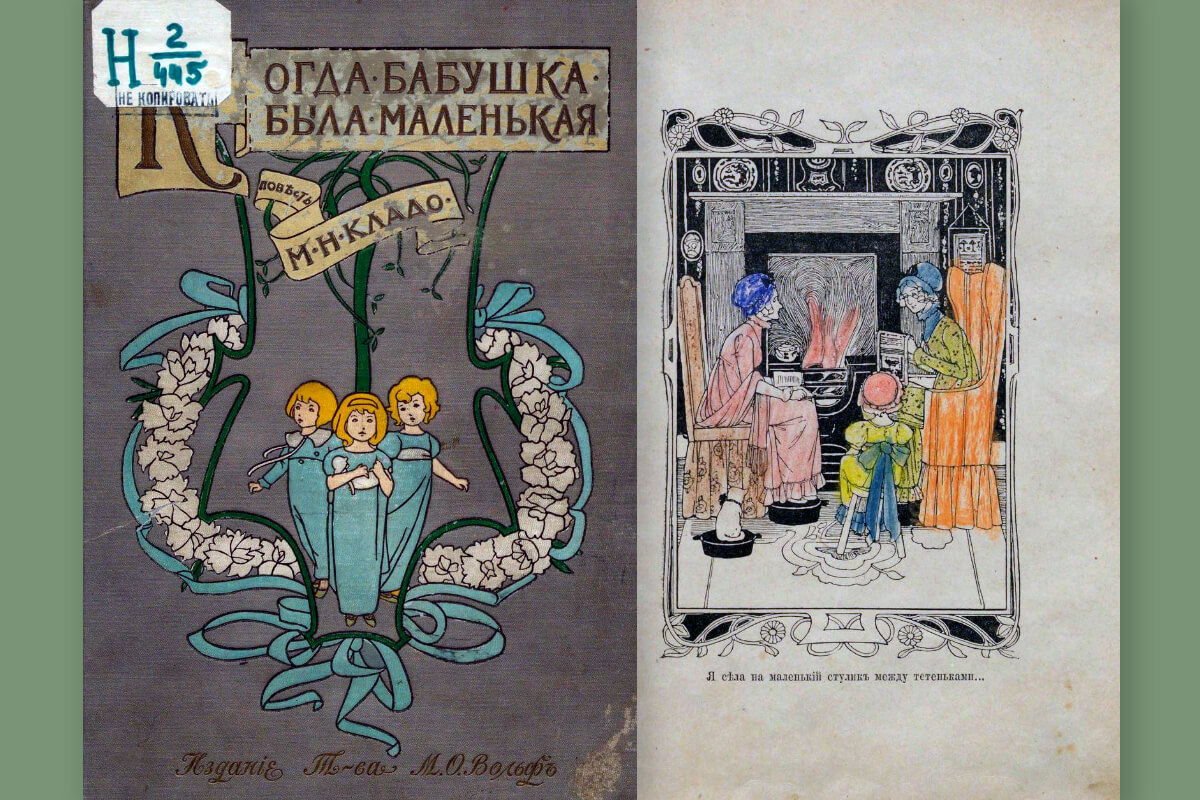 Н 2/445
НЕ КОПИРОВАТЬ
КОГДА·БАБУШКА·
БЫЛА·МАЛЕНЬКАЯ
ПОВѢСТЬ
М·Н·КЛАДО·
Изданіе Т-ва М.О.Вольфъ
Я сѣла на маленькій стуликъ между тетеньками...